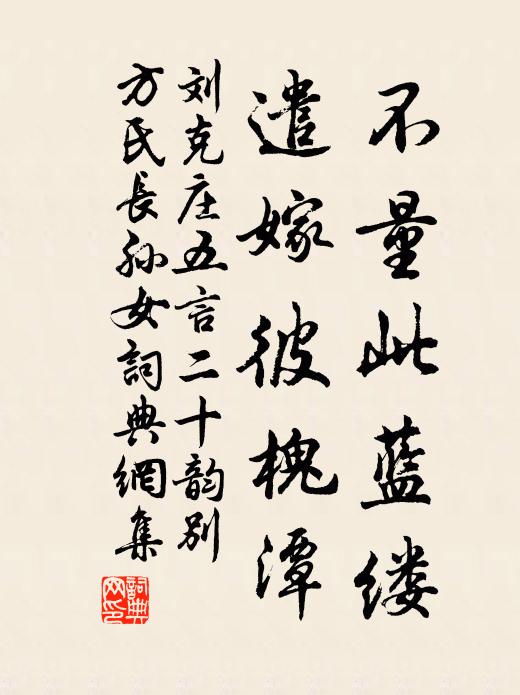 不量此蓝缕
遣嫁彼槐潭
刘克庄五言二十韵别
方氏長孙女詞典網集
詞典网印